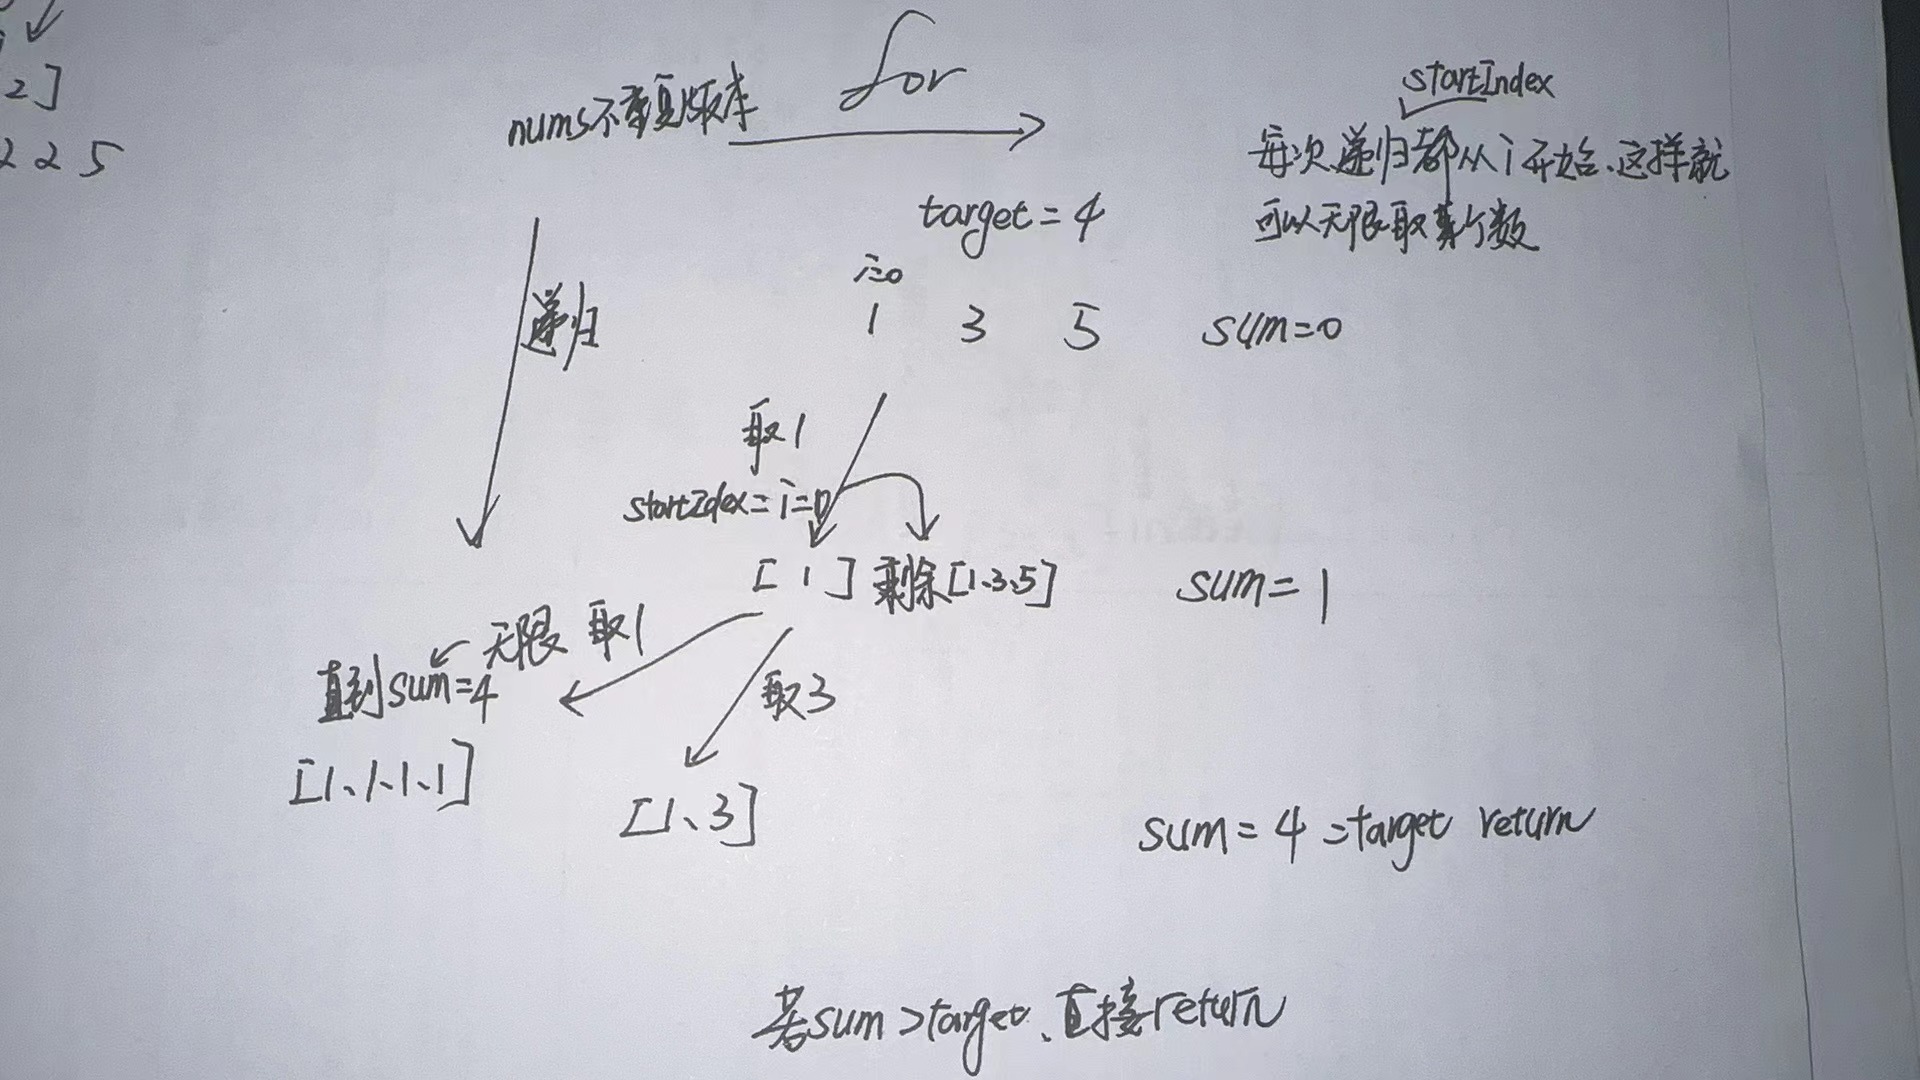 2]
2 2 5
for
nums不重复版本
startIndex
每次递归都从i开始、这样就
可以无限取某个数
target=4
i=0
递归
1 3 5 sum=0
取1
startIdex=i=0
[1] 剩余[1、3、5] sum=1
无限取1
直到sum=4
取3
[1、1、1、1]
[1、3]
sum=4=target return
若sum>target、直接return